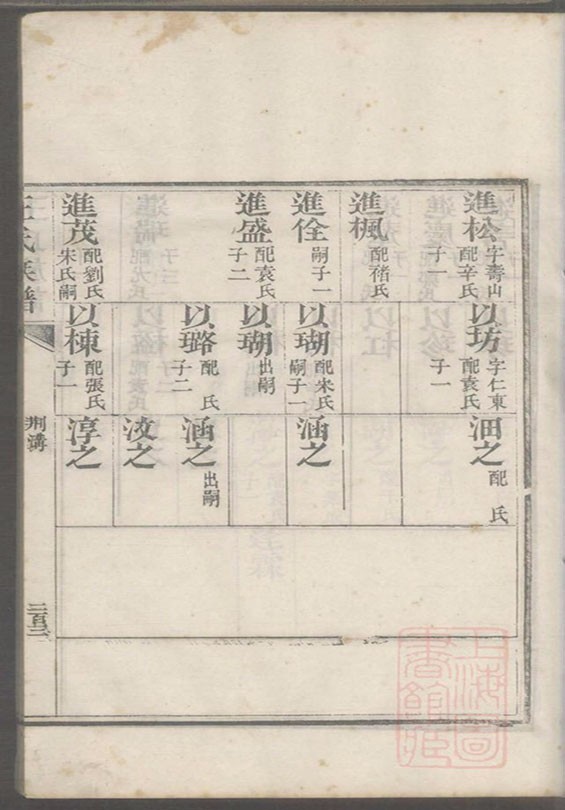 進松
字壽山
配辛氏
子一
進楓
配褚氏
進佺
嗣子一
進盛
配袁氏
子二
進茂
配劉氏
宋氏嗣
以坊
字仁東
配袁氏
子一
以瑚
配宋氏
嗣子一
以瑚
出嗣
以璐
配 氏
子二
以棟
配張氏
子一
沺之
配 氏
涵之
涵之
出嗣
淩之
淳之
王氏族譜
荆溝
二百二
上海圖書館藏